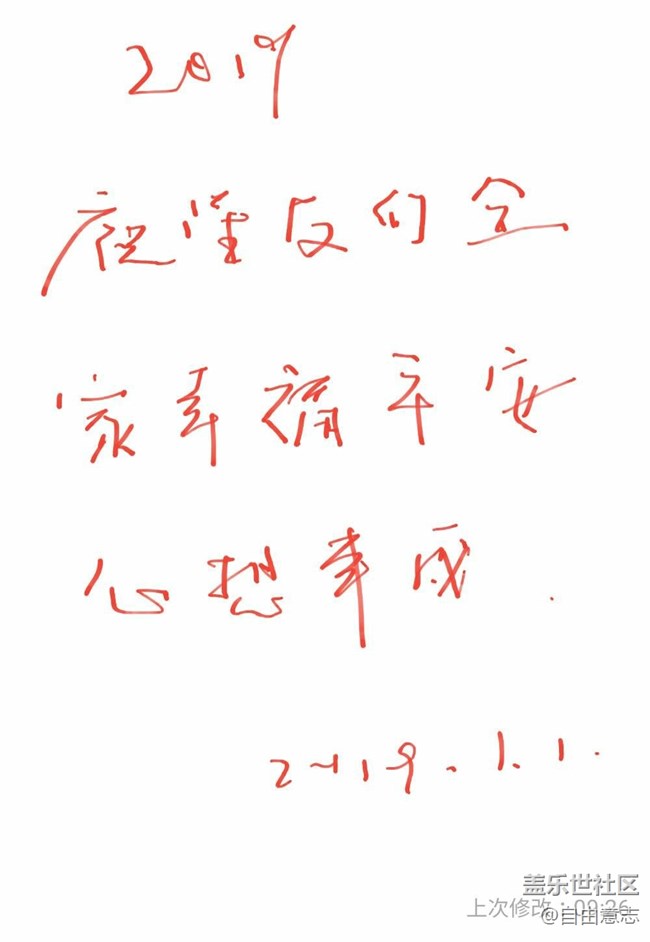 2019
祝盖友们全
家幸福平安
心想事成.
2019.1.1.
盖乐世社区
上次修改：09:26
@自由意志